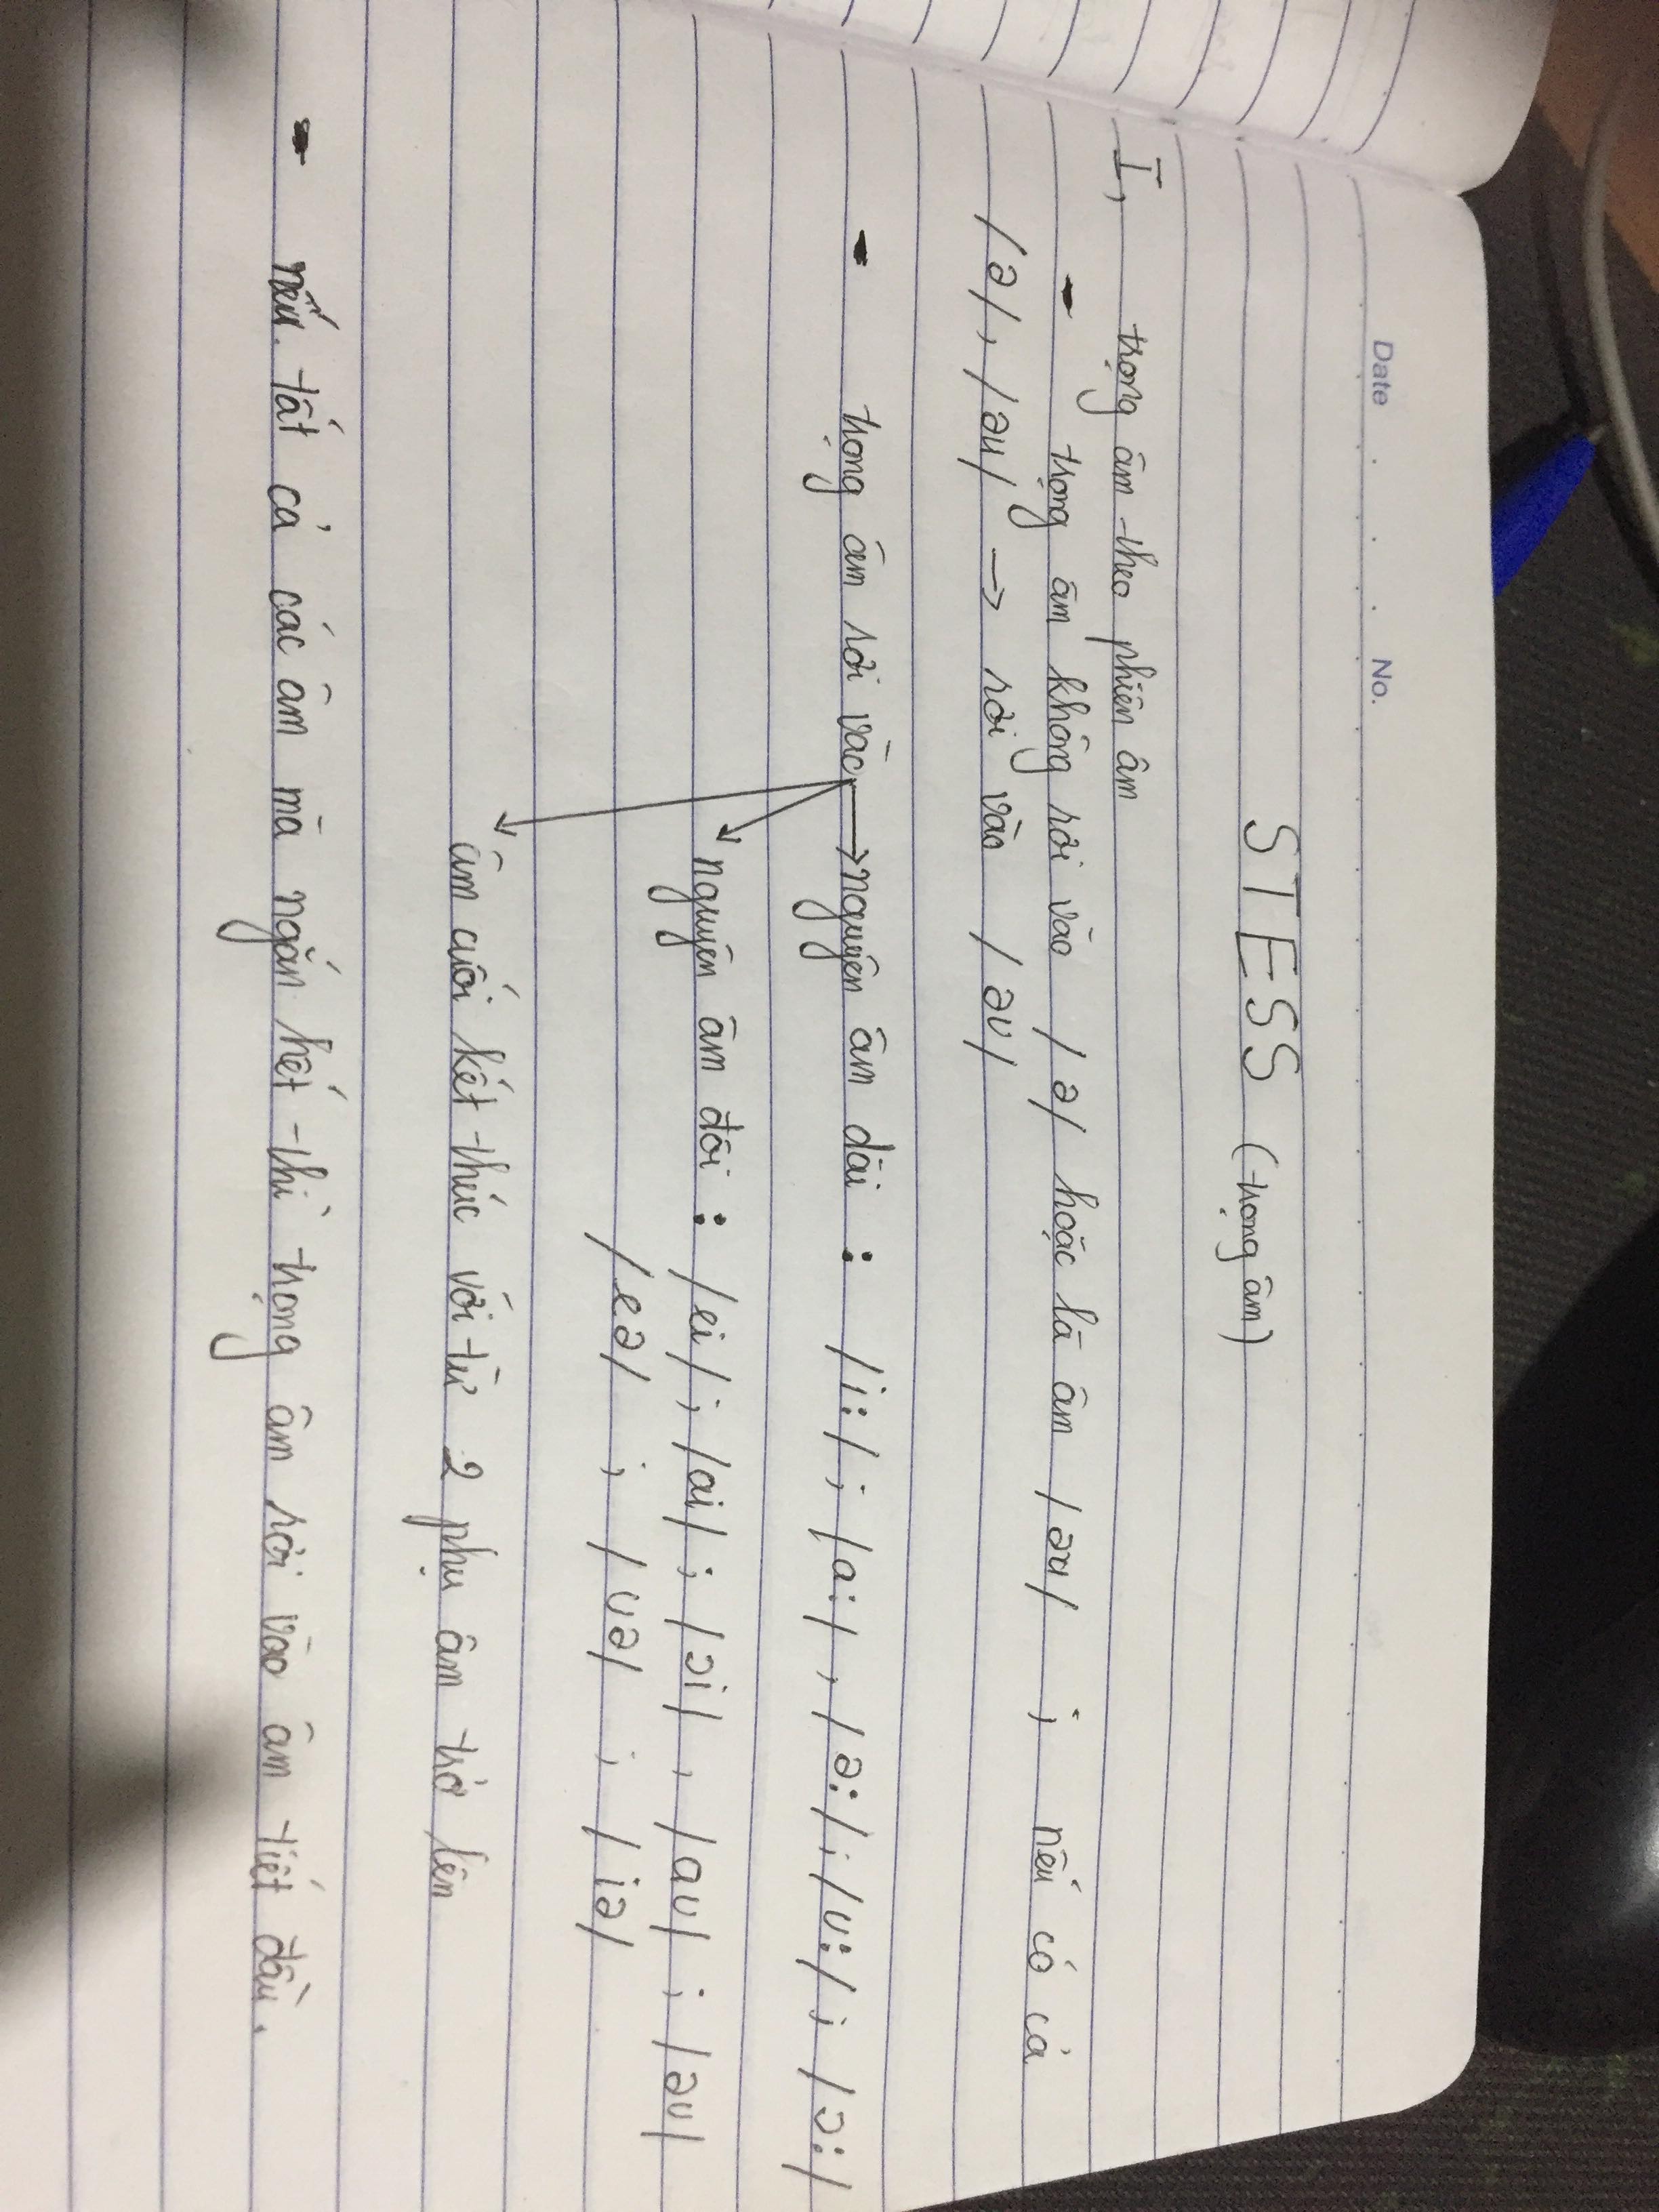 Date No.
STESS (trọng âm)
I, trọng âm theo phiên âm
- trọng âm không rơi vào /ə/ hoặc là âm /əu/ ; nếu có cả
/ə/, /əu/ → rơi vào /əʊ/
- trọng âm rơi vào → nguyên âm dài : /i:/ ; /a:/ , /ə:/ ; /ʊ:/ ; /ɔ:/
nguyên âm đôi : /ei/ ; /ai/ ; /ɔi/ , /aʊ/ ; /əʊ/
/eə/ ; /ʊə/ ; /iə/
âm cuối kết thúc với từ 2 phụ âm trở lên
- nếu tất cả các âm mà ngắn hết thì trọng âm rơi vào âm tiết đầu.